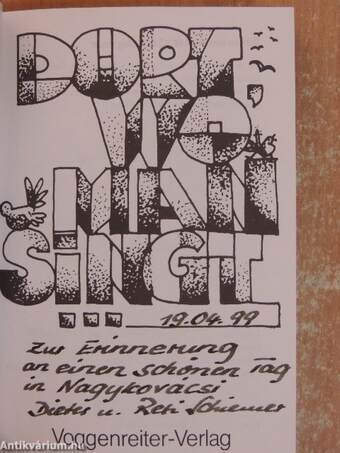 DORT,
WO
MAN
SINGT
...
19.04.99
Zur Erinnerung
an einen schönen Tag
in Nagykovácsi
Dieter u. Reti Schiemer
Voggenreiter-Verlag
Antikvárium.hu